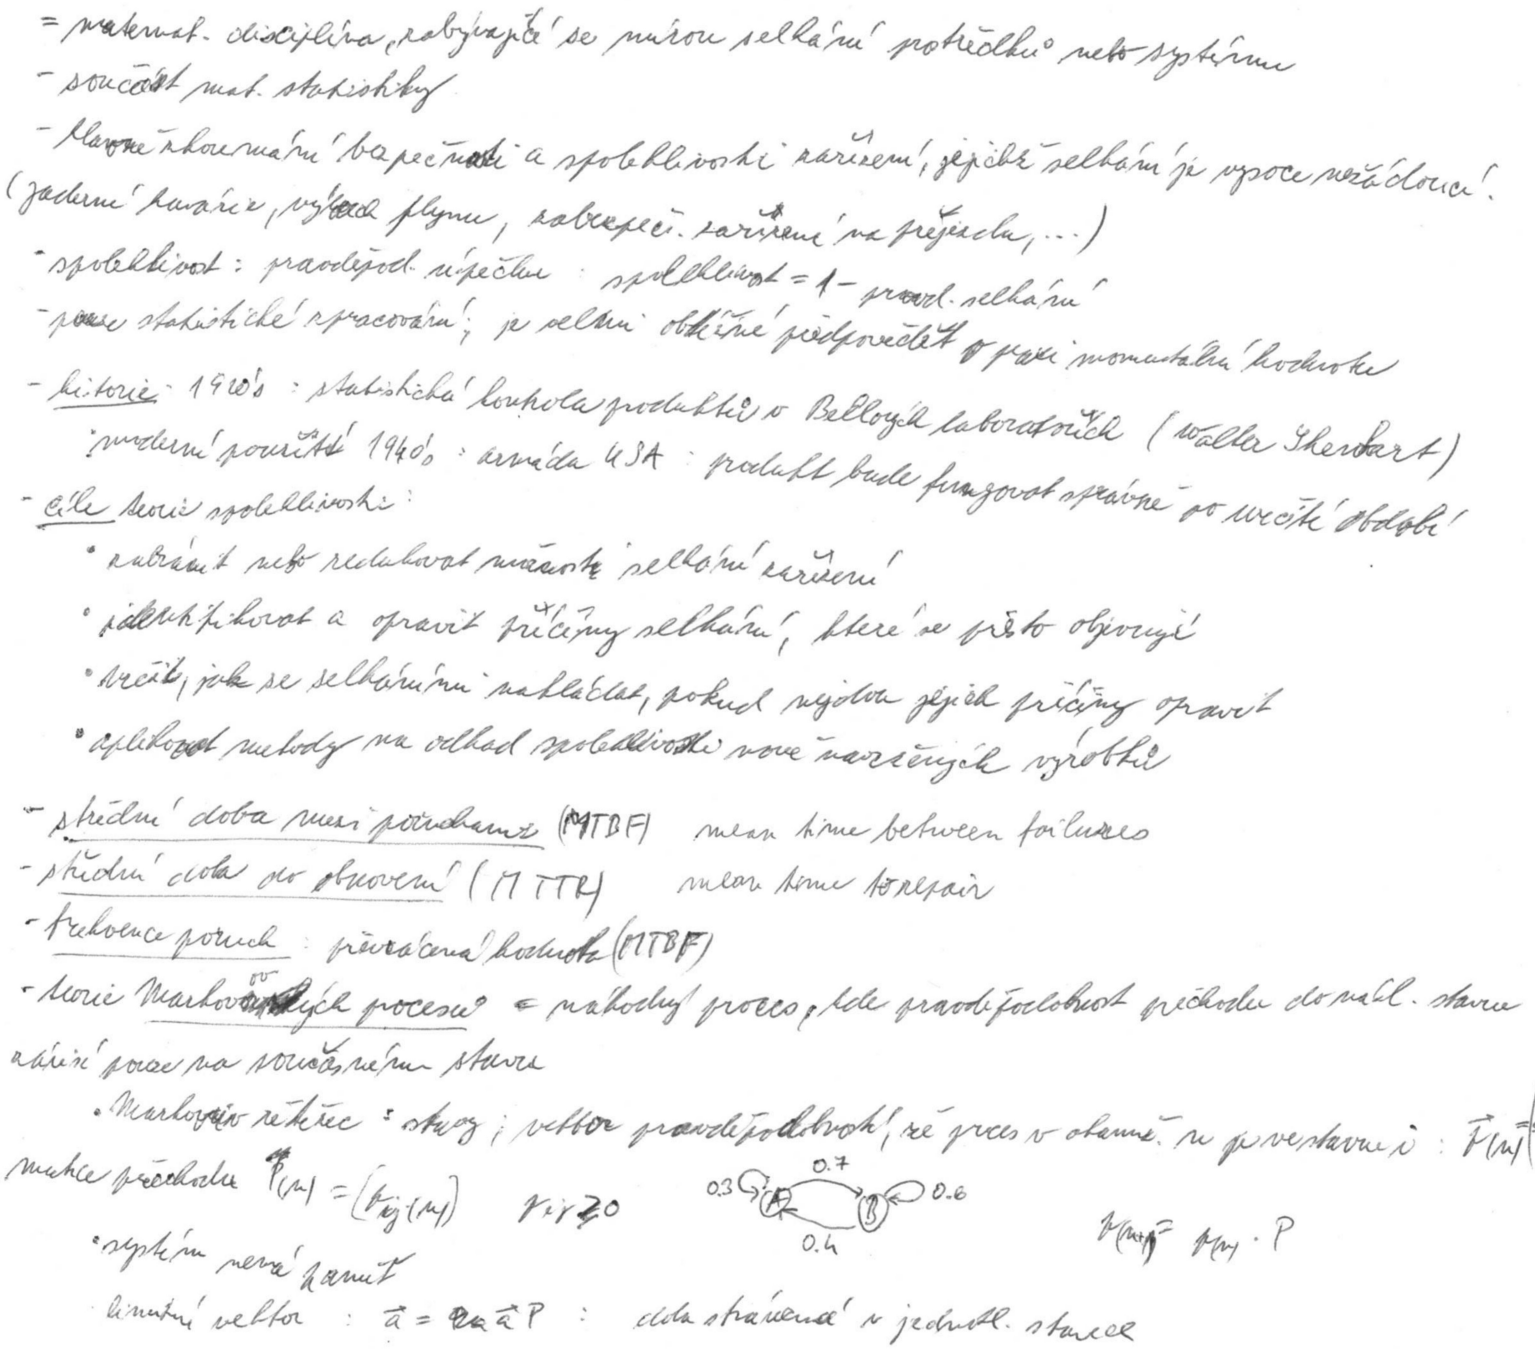 = matemat. disciplína, zabývající se mírou selhání potředků nebo systému
- součást mat. statistiky
- hlavně zkoumání bezpečnosti a spolehlivosti zařízení, jejichž selhání je vysoce nežádoucí.
(jaderné havárie, výbuch plynu, zabezpeč. zařízení na přejezdu, ...)
- spolehlivost : pravděpod. úspěchu : spolehlivost = 1 - pravd. selhání
- pouze statistické zpracování; je velmi obtížné předpovědět v praxi momentální hodnotu
- historie: 1920's : statistická kontrola produktů v Bellových laboratořích (Walter Shewhart)
• moderní použití 1940's : armáda USA : produkt bude fungovat správně po určité období
- cíle teorie spolehlivosti:
• zabránit nebo redukovat možnosti selhání zařízení
• identifikovat a opravit příčiny selhání, které se přesto objevují
• určit, jak se selháními nakládat, pokud nejdou jejich příčiny opravit
• aplikovat metody na odhad spolehlivosti nově navržených výrobků
- střední doba mezi poruchami (MTBF) mean time between failures
- střední doba do obnovení (MTTR) mean time to repair
- frekvence poruch : převrácená hodnota (MTBF)
- teorie Markovových procesů = náhodný proces, kde pravděpodobnost přechodu do násl. stavu
závisí pouze na současném stavu
• Markovův řetězec : stavy ; vektor pravděpodobností, že proces v okamž. n je ve stavu i : p⃗(n)
matice přechodu P(n) = (pij(n)) pij ≥ 0
0.3 A 0.7 B 0.6
0.4
p(n+1) = p(n) · P
• systém nemá paměť
limitní vektor : a⃗ = a⃗ P : doba strávená v jednotl. stavech